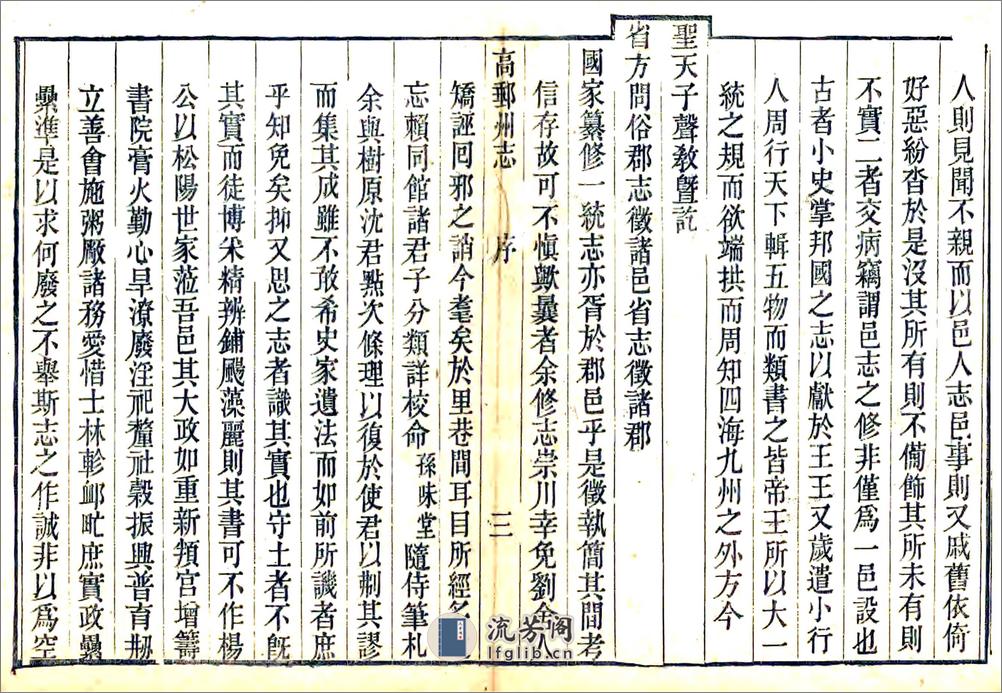 人則見聞不親而以邑人志邑事則又戚舊依倚
好惡紛沓於是沒其所有則不備飾其所未有則
不實二者交病竊謂邑志之修非僅爲一邑設也
古者小史掌邦國之志以獻於王王又歲遣小行
人周行天下輯五物而類書之皆帝王所以大一
統之規而欲端拱而周知四海九州之外方今
聖天子聲教曁訖
省方問俗郡志徵諸邑省志徵諸郡
國家纂修一統志亦胥於郡邑乎是徵執簡其間考
信存故可不愼歟曩者余修志崇川幸免劉金人
高郵州志 序 三
矯誣囘邪之誚今耄矣於里巷間耳目所經多
忘賴同館諸君子分類詳校命孫味堂隨侍筆札
余與樹原沈君點次條理以復於使君以刪其謬
而集其成雖不敢希史家遺法而如前所譏者庶
乎知免矣抑又思之志者識其實也守土者不旣
其實而徒博采精辨鋪颺藻麗則其書可不作楊
公以松陽世家蒞吾邑其大政如重新頖宮增籌
書院膏火勤心旱潦廢汪祀釐祉穀振興普育剏
立善會施粥廠諸務愛惜士林軫卹甿庶實政纍
纍準是以求何廢之不舉斯志之作誠非以爲空
流芳阁
lfglib.cn